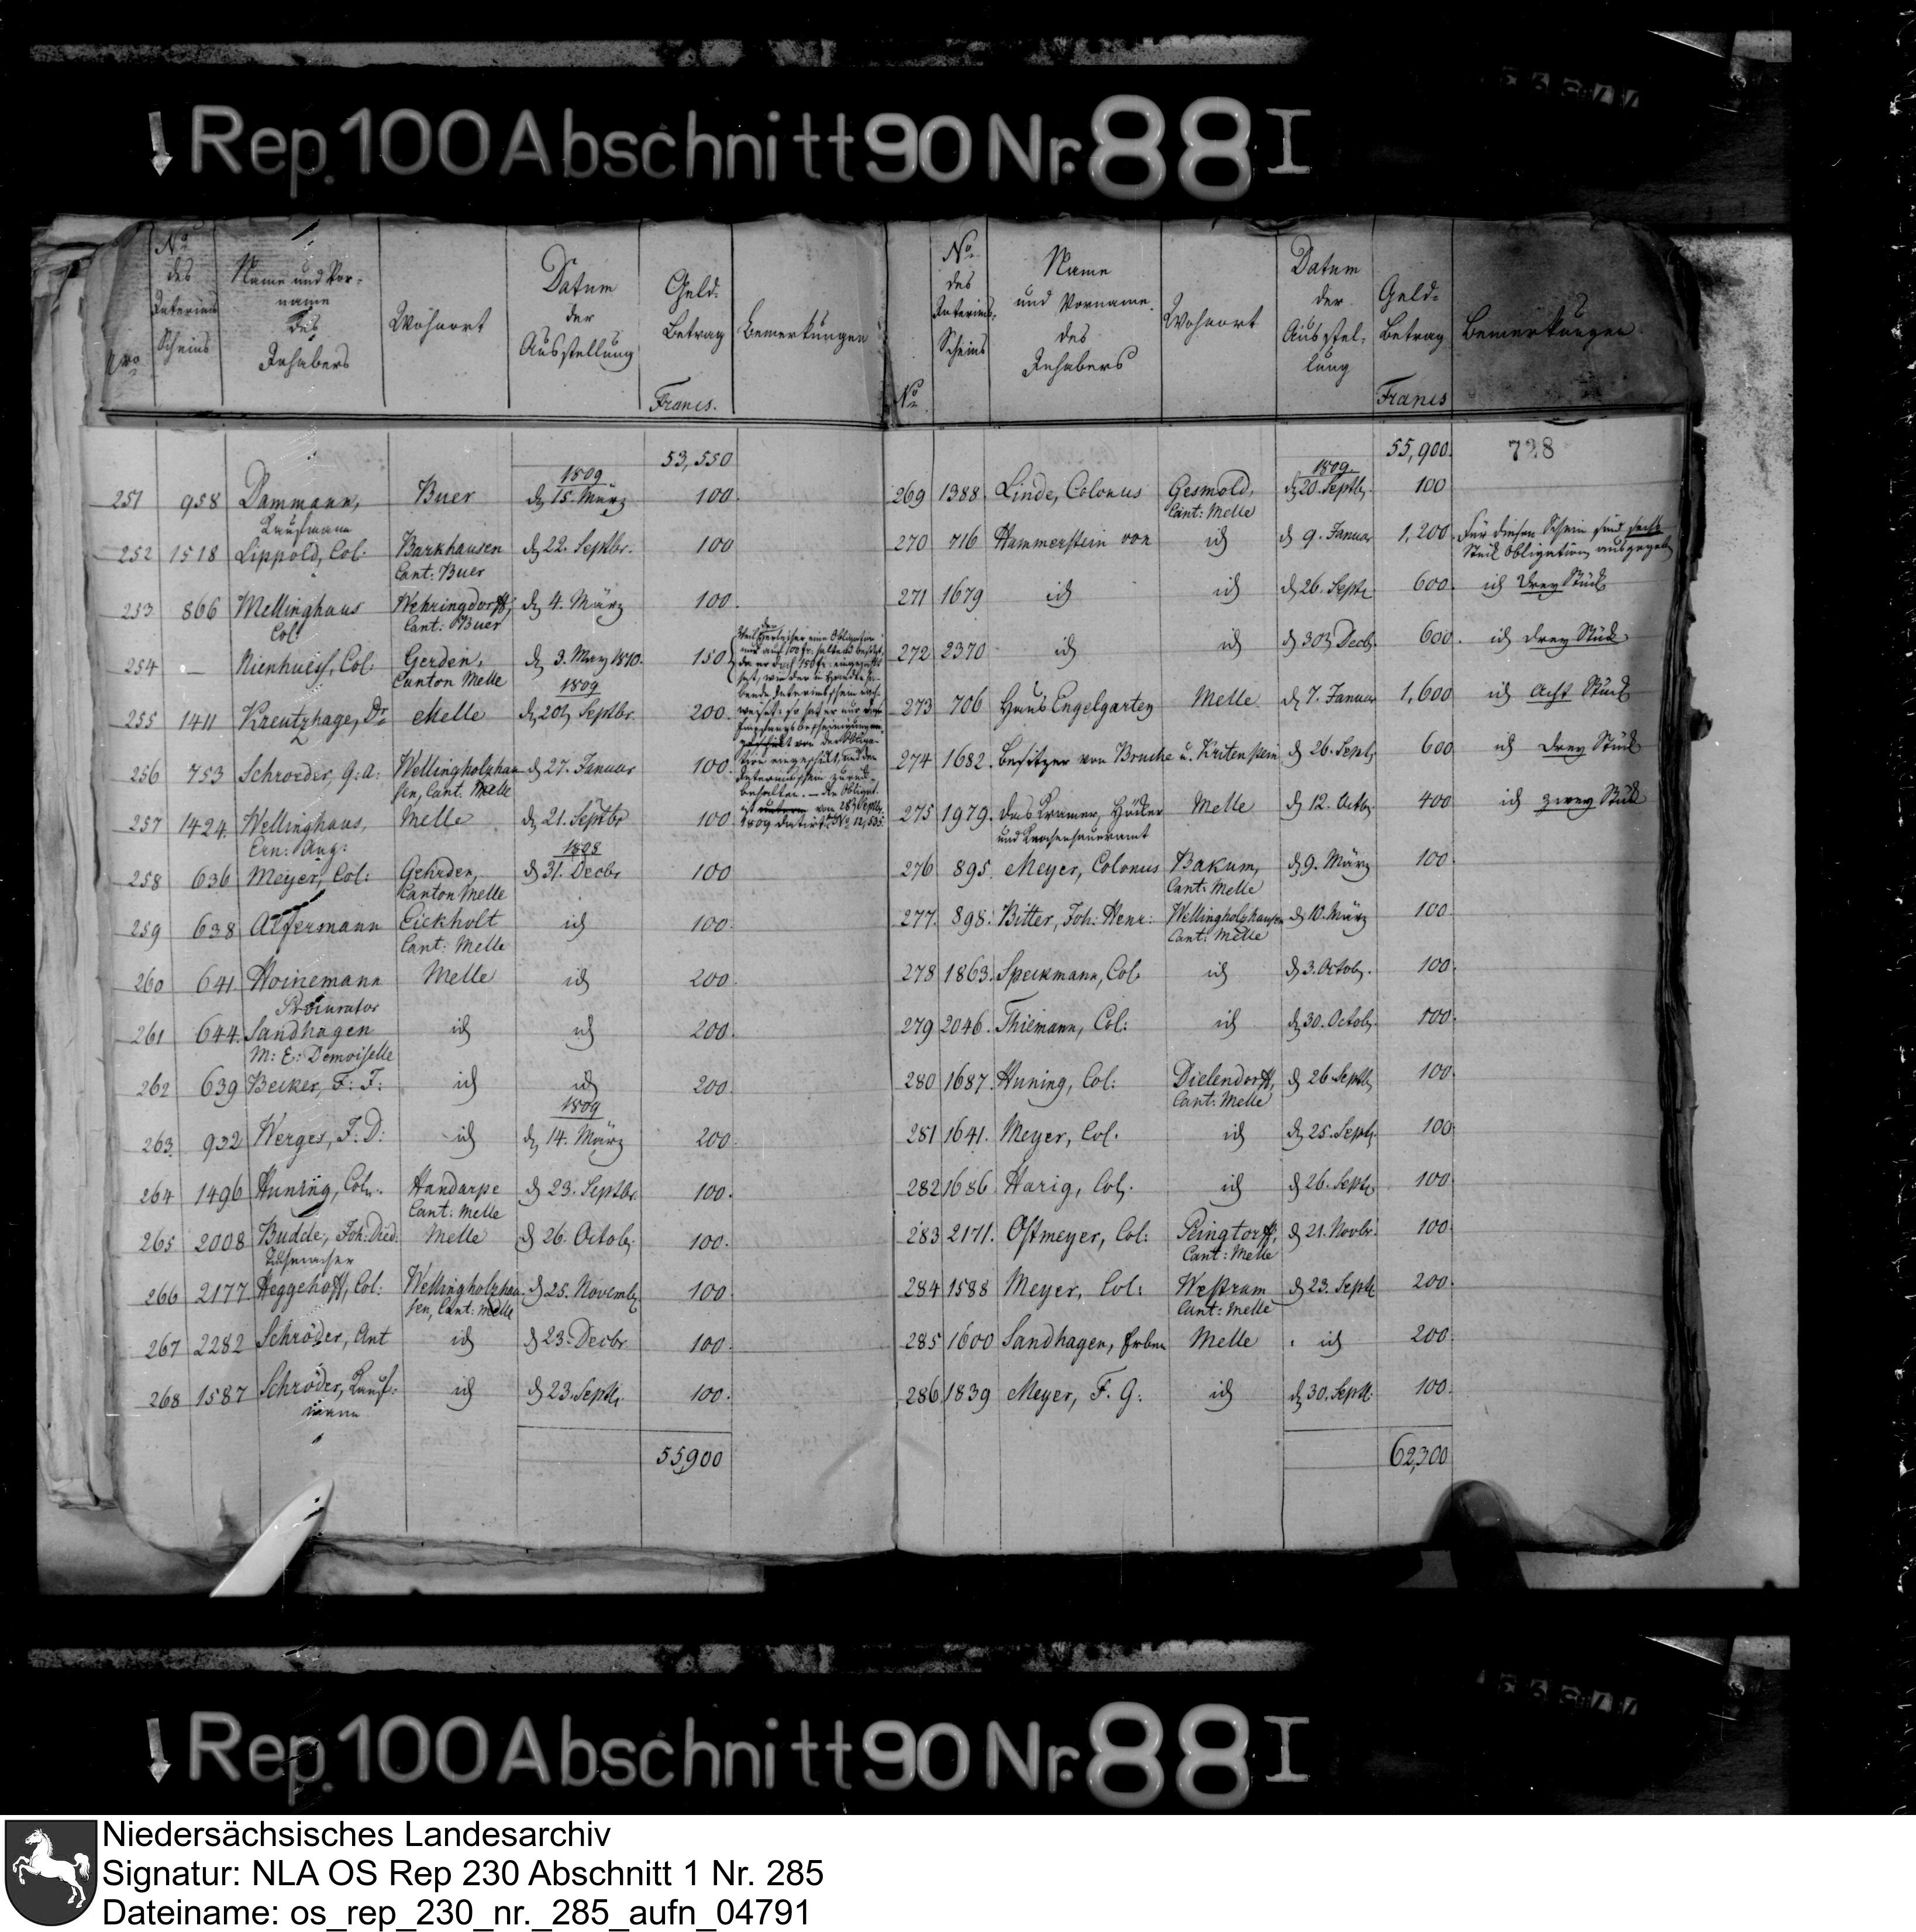 Rep. 100 Abschnitt 90 Nr. 88 I
Nro
No des Interims Scheins
Name und Vorname des Inhabers
Wohnort
Datum der Ausstellung
Geld-Betrag Francs.
Bemerkungen
53,550
1809
251 958 Dammann, Kaufmann Buer d 15. März 100.
252 1518 Lippold, Col. Barkhausen Cant: Buer d 22. Septbr. 100
253 866 Mellinghaus Col. Wehringdorff, Cant: Buer d 4. März 100.
254 — Nienhuess, Col. Gerden, Canton Melle d 3. May 1810. 150
1809
255 1411 Kreutzhage, Dr Melle d 20 Septbr. 200.
256 753 Schroeder, G: A: Wellingholzhausen, Cant. Melle d 27. Januar 100.
257 1424. Wellinghaus, Ern: Aug: Melle d 21. Septbr 100
1808
258 636 Meyer, Col: Gehrden, Canton Melle d 31. Decbr 100
259 638 Altermann Eickholt Cant: Melle id 100.
260 641 Hoinemann Procurator Melle id 200.
261 644. Sandhagen M: E: Demoiselle id id 200.
262 639 Becker, F: F: id id 200.
1809
263. 932 Werges, F: D: id d 14. März 200.
264 1496 Huning, Coln. Handarpe Cant: Melle d 23. Septbr. 100.
265 2008 Budde, Joh: Died: Melle d 26. Octob. 100.
266 2177. Heggehoff, Col: Wellingholzhausen, Cant: Melle d 25. Novemb. 100.
267 2282 Schröder, Ant id d 23. Decbr 100.
268 1587 Schröder, Kaufmann id d 23. Septb. 100.
55900
No
No des Interims-Scheins
Name und Vorname des Inhabers
Wohnort
Datum der Ausstellung
Geld-Betrag Francs
Bemerkungen
55,900. 728
1809.
269 1388. Linde, Colonus Gesmold, Cant: Melle d 20. Septb. 100
270 716 Hammerstein von id d 9. Januar 1,200. Für diesen Schein sind sechs Stück Obligation ausgegeben
271 1679 id id d 26. Septr. 600. id drey Stück
272 2370 id id d 30 Decb. 600. id drey Stück
273 706 Haus Engelgarten Melle d 7. Januar 1,600 id acht Stück
274 1682. Besitzer von Bruche u. Kritenstein d 26. Septb. 600 id drey Stück
275 1979. das Kramer, Höcker und Melle d 12. Octb. 400 id zwey Stück
276 895. Meyer, Colonus Bakum, Cant: Melle d 9. März 100.
277. 898. Bitter, Joh: Henr: Wellingholzhausen Cant: Melle d 10. März 100.
278 1863. Speckmann, Col. id d 3. Octob. 100.
279 2046. Thiemann, Col: id d 30. Octob. 100.
280 1687. Huning, Col: Dielendorff, Cant: Melle d 26. Septb. 100.
281 1641. Meyer, Col. id d 25. Septb. 100.
282 1686 Harig, Col. id d 26. Septb. 100.
283 2171. Ostmeyer, Col: Peingtorff, Cant: Melle d 21. Novbr. 100.
284 1588 Meyer, Col: Westram Cant: Melle d 23. Septb. 200.
285 1600 Sandhagen, Erben Melle id 200.
286 1839 Meyer, F. G: id d 30. Septb. 100.
62,300
Rep. 100 Abschnitt 90 Nr. 88 I
Niedersächsisches Landesarchiv
Signatur: NLA OS Rep 230 Abschnitt 1 Nr. 285
Dateiname: os_rep_230_nr._285_aufn_04791